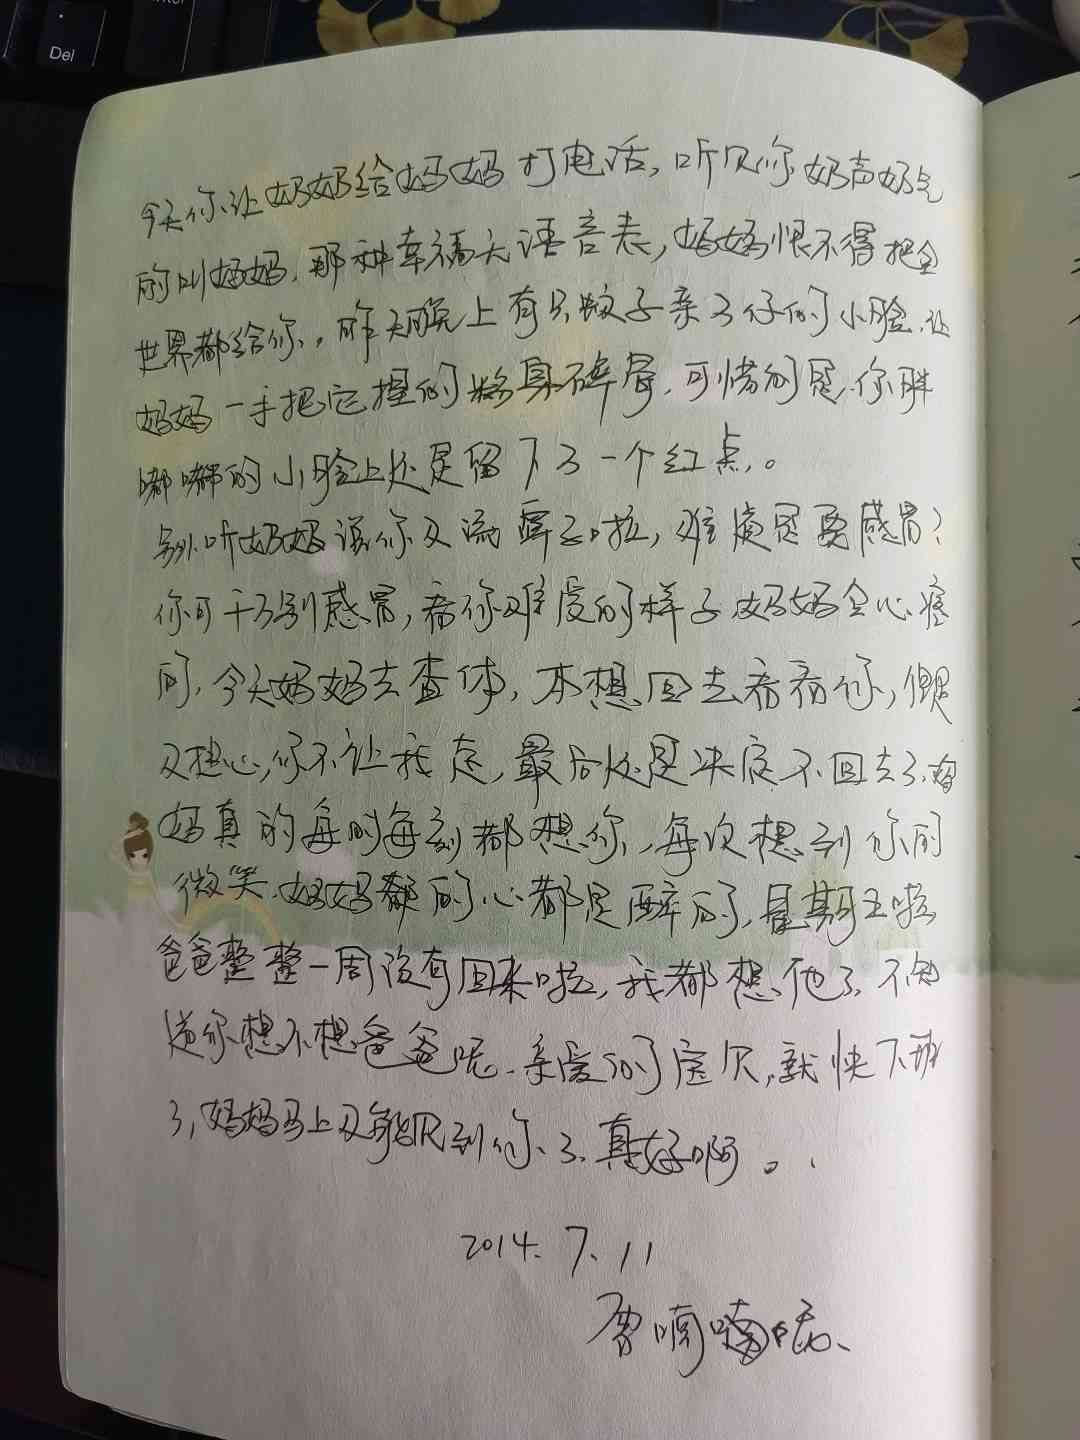 Del
今天你让奶奶给妈妈打电话,听见你奶声奶气
的叫妈妈,那种幸福无语言表,妈妈恨不得把全
世界都给你。昨天晚上有只蚊子亲了仔的小脸,让
妈妈一手把它捏的粉身碎骨,可惜的是你胖
嘟嘟的小脸上还是留下了一个红点。
另外听奶奶说你又流鼻子啦,难道是要感冒?
你可千万别感冒,看你难受的样子妈妈会心疼
的,今天妈妈去查体,本想回去看看你,但是
又担心你不让我走,最后还是决定不回去了,妈
妈真的每时每刻都想你,每次想到你的
微笑,妈妈的心都是醉的,星期五啦
爸爸整整一周没有回来啦,我都想他了,不知
道你想不想爸爸呢,亲爱的宝贝,就快下班
了,妈妈马上又能见到你了,真好啊。
2014.7.11
喃喃